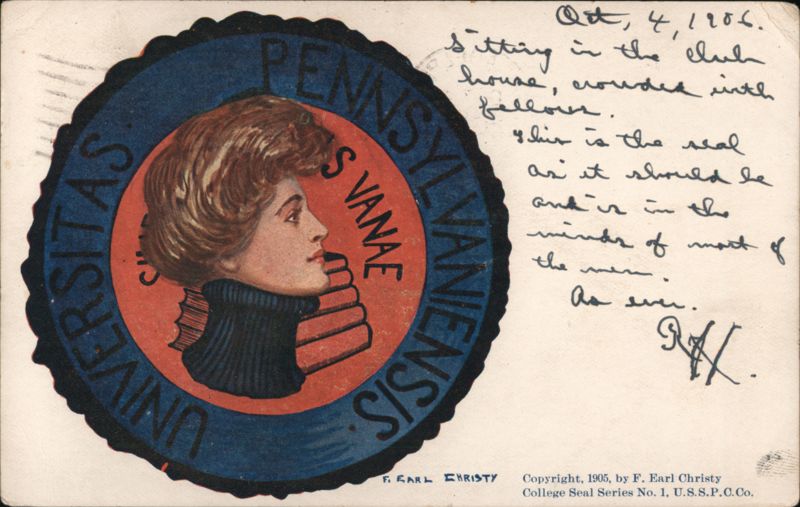 UNIVERSITAS · PENNSYLVANIENSIS ·
S VANAE
Oct, 4, 1906.
Sitting in the club
house, crowded with
fellows.
This is the seal
as it should be
and is in the
minds of most of
the men.
As ever.
F. EARL CHRISTY
Copyright, 1905, by F. Earl Christy
College Seal Series No. 1, U.S.S.P.C.Co.